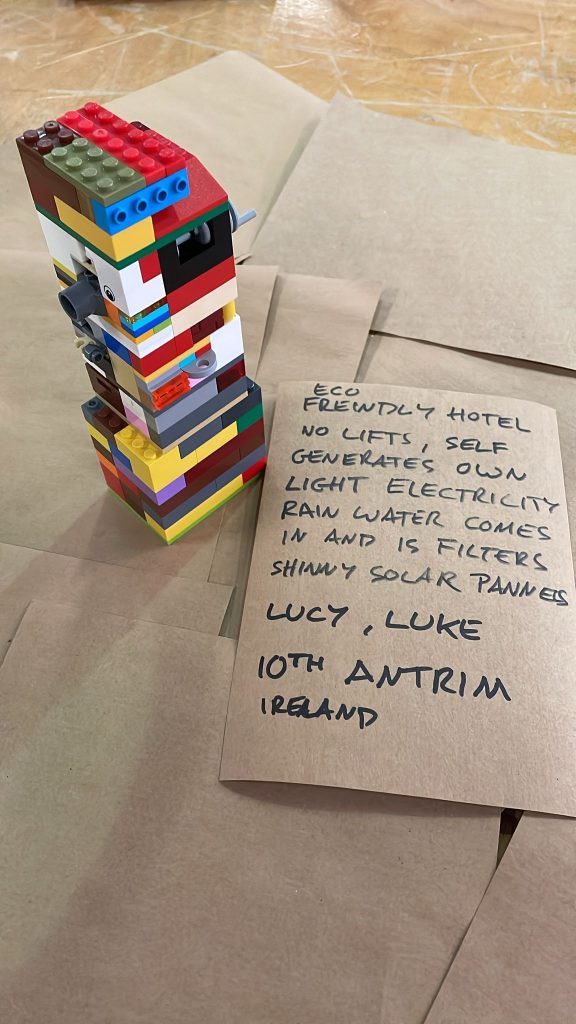 ECO
FREINDLY HOTEL
NO LIFTS, SELF
GENERATES OWN
LIGHT ELECTRICITY
RAIN WATER COMES
IN AND IS FILTERS
SHINNY SOLAR PANNELS
LUCY, LUKE
10TH ANTRIM
IRELAND